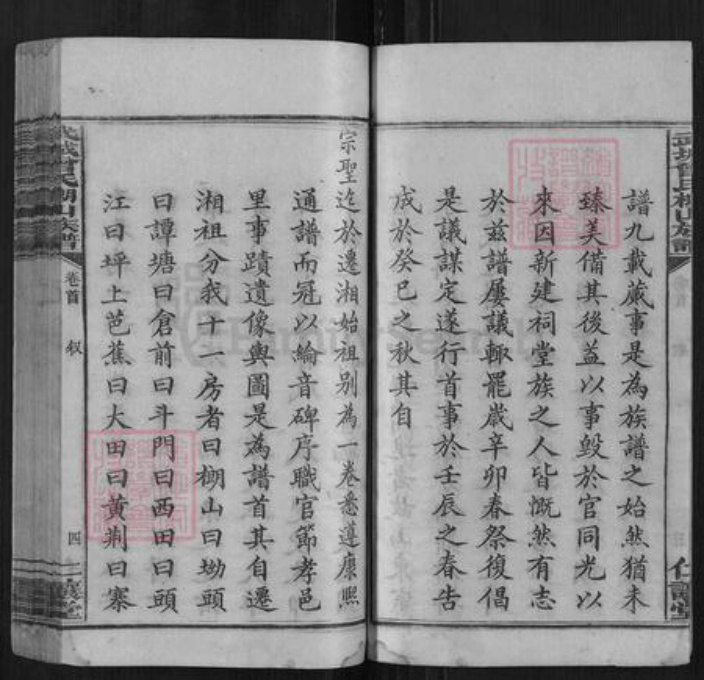 譜九載蕆事是為族譜之始然猶未
臻美備其後益以事毀於官同光以
來因新建祠堂族之人皆慨然有志
於茲譜屢議輒罷歲辛卯春祭復倡
是議謀定遂行首事於壬辰之春告
成於癸巳之秋其自
宗聖迄於遷湘始祖別為一卷悉遵康熙
通譜而冠以綸音碑序職官節孝邑
里事蹟遺像輿圖是為譜首其自遷
湘祖分我十一房者曰棚山曰坳頭
曰譚塘曰倉前曰斗門曰西田曰頭
江曰坪上芭蕉曰大田曰黄荆曰寨
武城曾氏棚山族譜
卷首
叙
四
仁讓堂